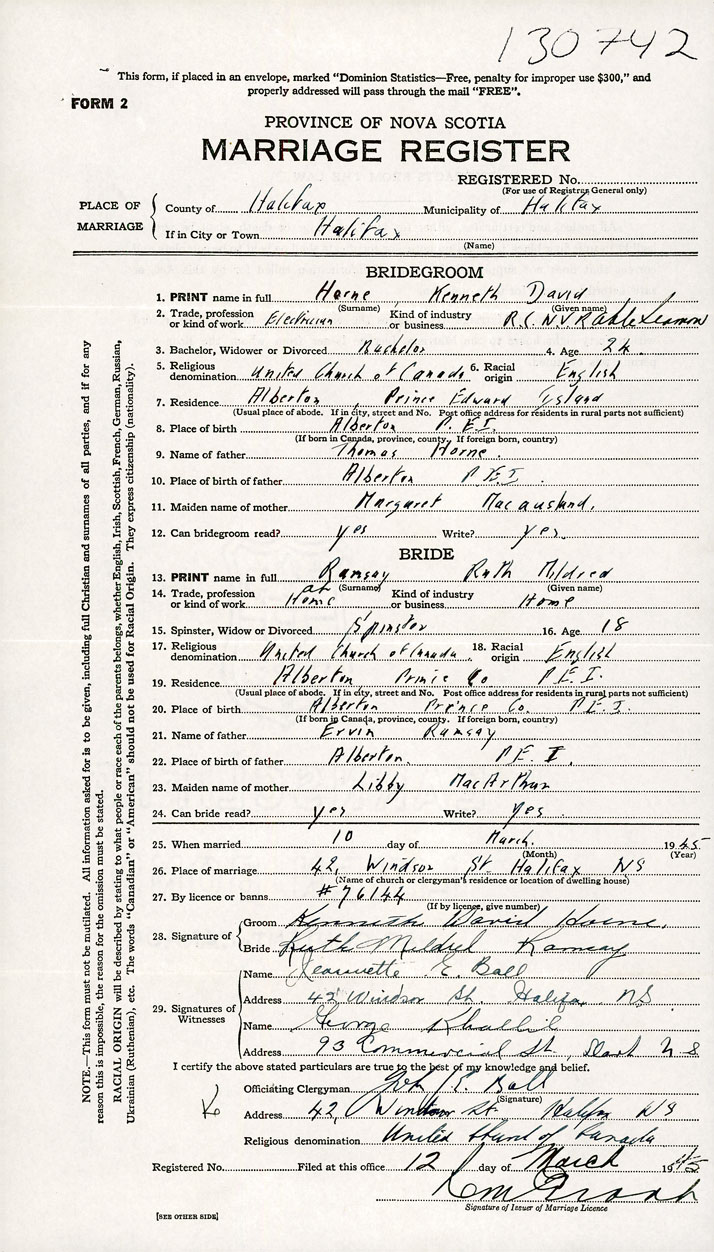 130742
This form, if placed in an envelope, marked “Dominion Statistics—Free, penalty for improper use $300,” and
properly addressed will pass through the mail “FREE”.
FORM 2
PROVINCE OF NOVA SCOTIA
MARRIAGE REGISTER
REGISTERED No.
(For use of Registrar General only)
PLACE OF MARRIAGE
County of Halifax Municipality of Halifax
If in City or Town Halifax
(Name)
BRIDEGROOM
1. PRINT name in full Horne Kenneth David
(Surname) (Given name)
2. Trade, profession or kind of work Electrician Kind of industry or business R.C.N.V.R Able Seaman
3. Bachelor, Widower or Divorced Bachelor 4. Age 24
5. Religious denomination United Church of Canada 6. Racial origin English
7. Residence Alberton Prince Edward Island
(Usual place of abode. If in city, street and No. Post office address for residents in rural parts not sufficient)
8. Place of birth Alberton P.E.I.
(If born in Canada, province, county. If foreign born, country)
9. Name of father Thomas Horne
10. Place of birth of father Alberton P.E.I.
11. Maiden name of mother Margaret Macausland.
12. Can bridegroom read? yes Write? yes.
BRIDE
13. PRINT name in full Ramsay Ruth Mildred
(Surname) (Given name)
14. Trade, profession or kind of work at Home Kind of industry or business Home
15. Spinster, Widow or Divorced Spinster 16. Age 18
17. Religious denomination United Church of Canada. 18. Racial origin English
19. Residence Alberton Prince Co P.E.I.
(Usual place of abode. If in city, street and No. Post office address for residents in rural parts not sufficient)
20. Place of birth Alberton Prince Co. P.E.I.
(If born in Canada, province, county. If foreign born, country)
21. Name of father Ervin Ramsay
22. Place of birth of father Alberton, P.E.I.
23. Maiden name of mother Libby MacArthur
24. Can bride read? yes Write? yes.
25. When married 10 day of March. 1945
(Month) (Year)
26. Place of marriage 42, Windsor St. Halifax NS
(Name of church or clergyman's residence or location of dwelling house)
27. By licence or banns #76144
(If by licence, give number)
28. Signature of
Groom Kenneth David Horne.
Bride Ruth Mildred Ramsay
29. Signatures of Witnesses
Name Jeannette E. Ball
Address 42 Windsor St. Halifax NS
Name George
Address 93 Commercial St, Dart N.S
I certify the above stated particulars are true to the best of my knowledge and belief.
Officiating Clergyman E. Ball
(Signature)
Address 42, Windsor St. Halifax NS
Religious denomination United Church of Canada
Registered No. Filed at this office 12 day of March 1945
Signature of Issuer of Marriage Licence
[SEE OTHER SIDE]
NOTE.—This form must not be mutilated. All information asked for is to be given, including full Christian and surnames of all parties, and if for any
reason this is impossible, the reason for the omission must be stated.
RACIAL ORIGIN will be described by stating to what people or race each of the parents belongs, whether English, Irish, Scottish, French, German, Russian,
Ukrainian (Ruthenian), etc. The words “Canadian” or “American” should not be used for Racial Origin. They express citizenship (nationality).